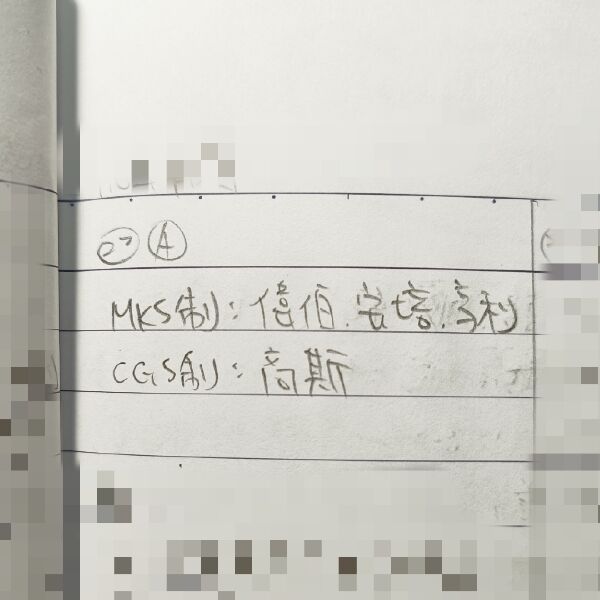 27 A
MKS制:億伯.宏培.亨利
CGS制:高斯